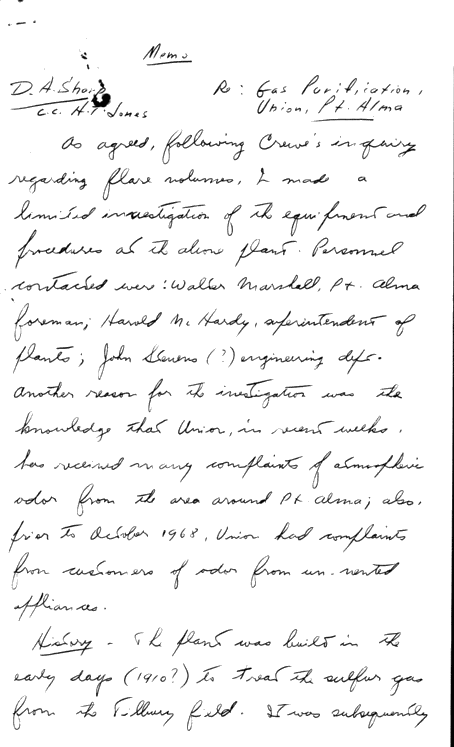 Memo
D. A. Sharp Re: Gas Purification,
c.c. H.T. Jones Union, Pt. Alma
As agreed, following Crewe's inquiry
regarding flare volumes, I made a
limited investigation of the equipment and
procedures at the above plant. Personnel
contacted were: Walter Marshall, Pt. Alma
foreman; Harold McHardy, superintendent of
plants; John Stevens (?) engineering dept.
Another reason for the investigation was the
knowledge that Union, in recent weeks,
has received many complaints of atmospheric
odor from the area around Pt Alma; also,
prior to October 1968, Union had complaints
from customers of odor from un-vented
appliances.
History - The plant was built in the
early days (1910?) to treat the sulfur gas
from the Tilbury field. It was subsequently